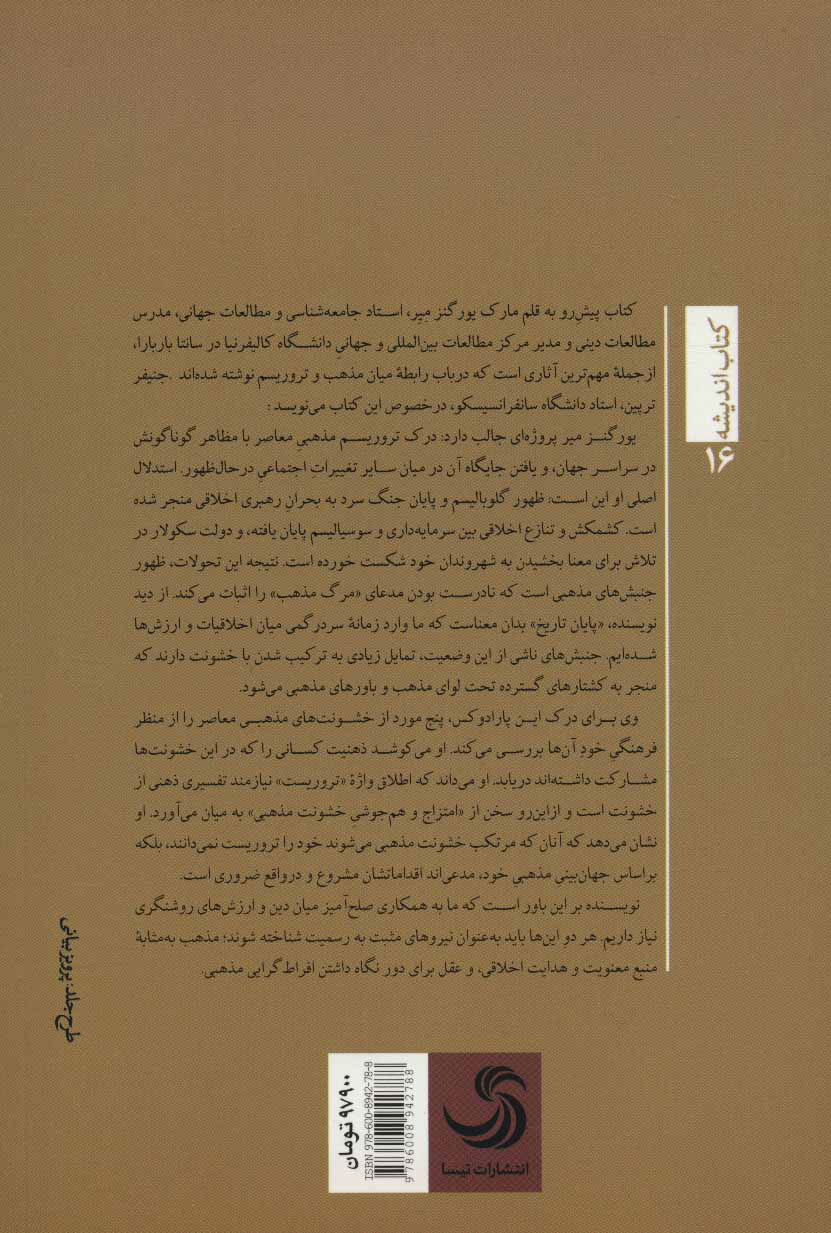 کتاب اندیشه
۱۶
کتاب پیش‌رو به قلم مارک یورگنز مِیر، استاد جامعه‌شناسی و مطالعات جهانی، مدرس
مطالعات دینی و مدیر مرکز مطالعات بین‌المللی و جهانیِ دانشگاه کالیفرنیا در سانتا باربارا،
ازجملهٔ مهم‌ترین آثاری است که درباب رابطهٔ میان مذهب و تروریسم نوشته شده‌اند .جنیفر
ترپین، استاد دانشگاه سانفرانسیسکو، درخصوص این کتاب می‌نویسد:
یورگنز میر پروژه‌ای جالب دارد: درک تروریسم مذهبیِ معاصر با مظاهر گوناگونش
در سراسر جهان، و یافتن جایگاه آن در میان سایر تغییراتِ اجتماعیِ درحال‌ظهور. استدلال
اصلی او این است: ظهور گلوبالیسم و پایان جنگ سرد به بحرانِ رهبری اخلاقی منجر شده
است. کشمکش و تنازع اخلاقی بین سرمایه‌داری و سوسیالیسم پایان یافته، و دولت سکولار در
تلاش برای معنا بخشیدن به شهروندان خود شکست خورده است. نتیجه این تحولات، ظهور
جنبش‌های مذهبی است که نادرست بودن مدعای «مرگ مذهب» را اثبات می‌کند. از دید
نویسنده، «پایان تاریخ» بدان معناست که ما وارد زمانهٔ سردرگمی میان اخلاقیات و ارزش‌ها
شده‌ایم. جنبش‌های ناشی از این وضعیت، تمایل زیادی به ترکیب شدن با خشونت دارند که
منجر به کشتارهای گسترده تحت لوای مذهب و باورهای مذهبی می‌شود.
وی برای درک این پارادوکس، پنج مورد از خشونت‌های مذهبی معاصر را از منظر
فرهنگیِ خودِ آن‌ها بررسی می‌کند. او می‌کوشد ذهنیت کسانی را که در این خشونت‌ها
مشارکت داشته‌اند دریابد. او می‌داند که اطلاق واژهٔ «تروریست» نیازمند تفسیری ذهنی از
خشونت است و ازاین‌رو سخن از «امتزاج و هم‌جوشیِ خشونت مذهبی» به میان می‌آورد. او
نشان می‌دهد که آنان که مرتکب خشونت مذهبی می‌شوند خود را تروریست نمی‌دانند، بلکه
براساس جهان‌بینی مذهبیِ خود، مدعی‌اند اقداماتشان مشروع و درواقع ضروری است.
نویسنده بر این باور است که ما به همکاری صلح‌آمیز میان دین و ارزش‌های روشنگری
نیاز داریم. هر دوِ این‌ها باید به‌عنوان نیروهای مثبت به رسمیت شناخته شوند؛ مذهب به‌مثابهٔ
منبع معنویت و هدایت اخلاقی، و عقل برای دور نگاه داشتن افراط‌گرایی مذهبی.
طرح جلد: پرویز بیانی
۹۷۹۰۰ تومان
ISBN 978-600-8942-78-8
9 786008 942788
انتشارات تیسا